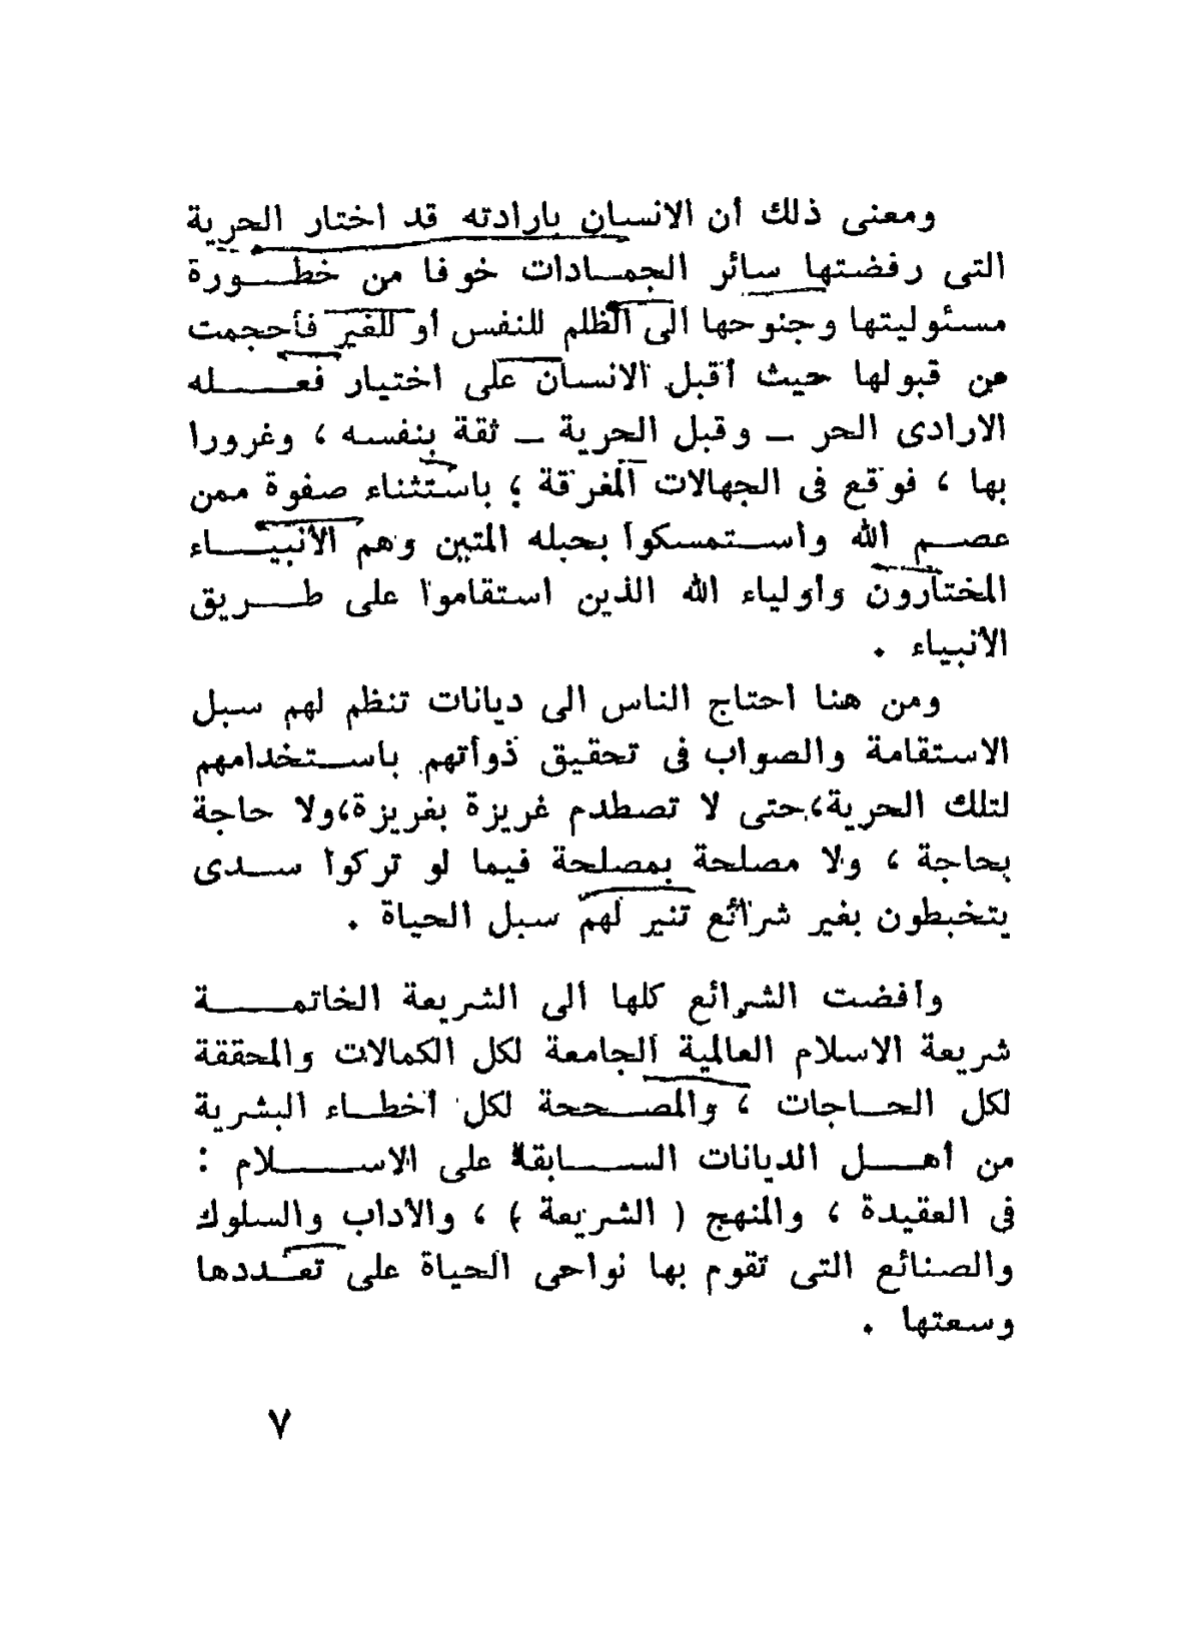 ومعنى ذلك أن الانسان بارادته قد اختار الحرية
التى رفضتها سائر الجمادات خوفا من خطورة
مسئوليتها وجنوحها الى الظلم للنفس أو للغير فأحجمت
من قبولها حيث أقبل الانسان على اختيار فعله
الارادى الحر – وقبل الحرية – ثقة بنفسه ، وغرورا
بها ، فوقع فى الجهالات المغرقة ؛ باستثناء صفوة ممن
عصم الله واستمسكوا بحبله المتين وهم الأنبياء
المختارون وأولياء الله الذين استقاموا على طريق
الأنبياء .
ومن هنا احتاج الناس الى ديانات تنظم لهم سبل
الاستقامة والصواب فى تحقيق ذواتهم باستخدامهم
لتلك الحرية، حتى لا تصطدم غريزة بغريزة، ولا حاجة
بحاجة ، ولا مصلحة بمصلحة فيما لو تركوا سدى
يتخبطون بغير شرائع تنير لهم سبل الحياة .
وأفضت الشرائع كلها الى الشريعة الخاتمة
شريعة الاسلام العالمية الجامعة لكل الكمالات والمحققة
لكل الحاجات ، والمصححة لكل أخطاء البشرية
من أهل الديانات السابقة على الاسلام :
فى العقيدة ، والمنهج ( الشريعة ) ، والآداب والسلوك
والصنائع التى تقوم بها نواحى الحياة على تعددها
وسعتها .
٧